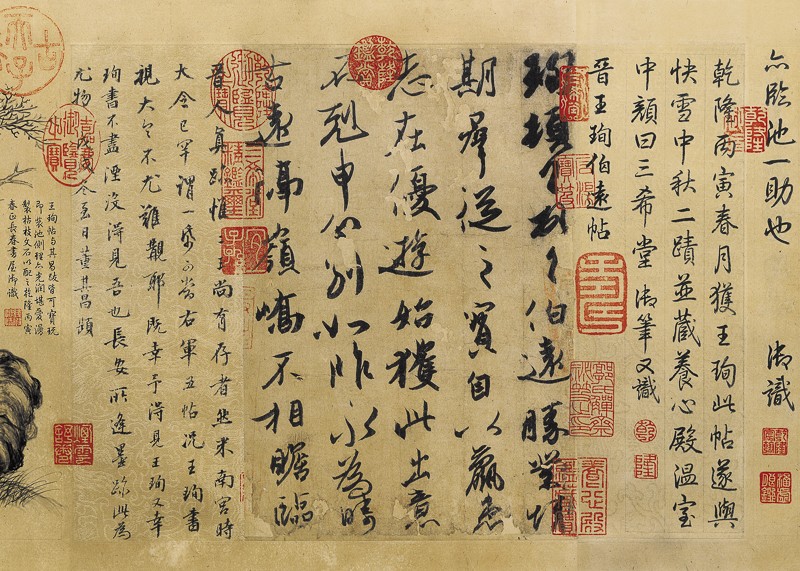 亦臨池一助也
御識
乾隆丙寅春月獲王珣此帖遂與
快雪中秋二蹟並藏養心殿溫室
中顏曰三希堂御筆又識
乾
隆
晉王珣伯遠帖
珣頓首頓首伯遠勝業情
期群從之寶自以羸患
志在優遊始獲此出意
不剋申分別如昨永為疇
古遠隔嶺嶠不相瞻臨
晉人真跡惟二王尚有存者然米南宮時
大令已罕謂一紙可當右軍五帖況王珣書
視大令不尤難覯耶既幸予得見王珣又幸
珣書不盡湮沒得見吾也長安所逢墨跡此為
尤物戊戌冬至日董其昌題
嘉慶御覽之寶
古希天子
王珣帖與其昌跋皆可寶玩
即裝池側理亦光潤堪愛漫
製枯枝文石以配之乾隆丙寅
春正長春書屋御識